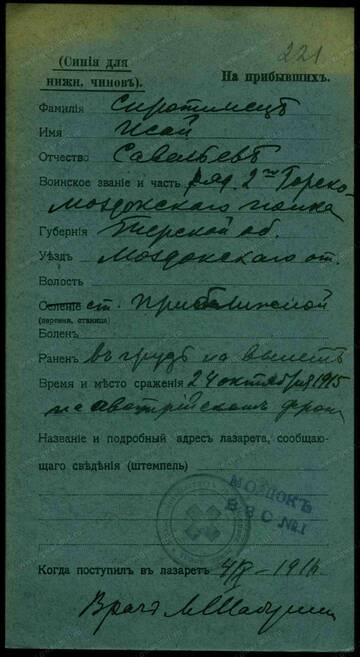 221
(Синія для
нижн. чиновъ).
На прибывшихъ.
Фамилія Сиротинецъ
Имя Исай
Отчество Савельевъ
Воинское званіе и часть ряд. 2го Горско-
моздокскаго полка
Губернія Терской об.
Уѣздъ Моздокскаго от.
Волость
Селеніе ст. Приближной
(деревня, станица)
Боленъ
Раненъ въ грудь на вылетъ
Время и мѣсто сраженія 24 октября 1915
на австрійскомъ фрон
Названіе и подробный адресъ лазарета, сообщаю-
щаго свѣдѣнія (штемпель)
МОЗДОКЪ
В З С №1
Когда поступилъ въ лазаретъ 1916
Врачъ